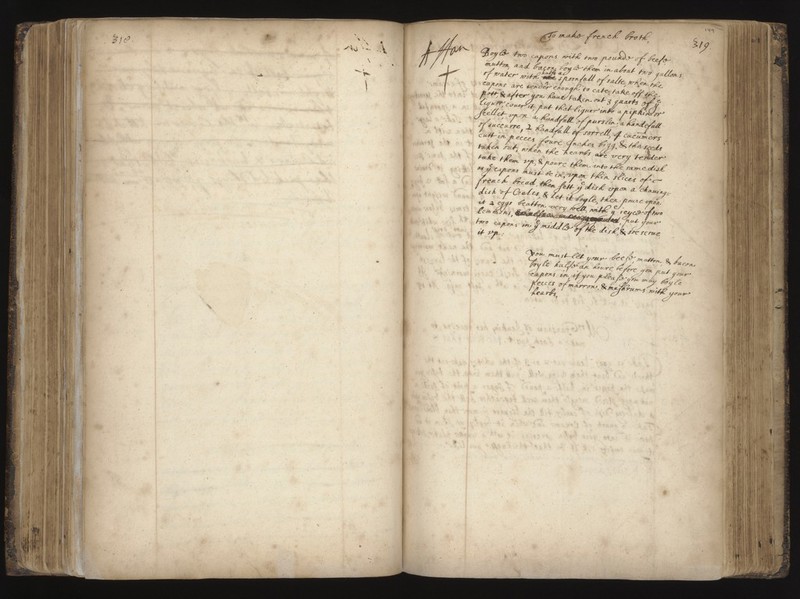 318
A Ham
To make french broth
319
Boyle two capons with two pounds of beefe
mutton and bacon, boyle them in about two gallons
of water with a spoonfull of salte, when the
capons are tender enough to eate, take off the
pott, & after you have taken out 3 quarts of
liquor, cover it, put that liquor into a pipkin or
skellet upon a handfull of purslin, a handfull
of succorie, 2 handfull of sorrell, 4 cucumers
cutt in peeces foure Inches bigg, & the seeds
taken out, when the hearbs are very tender
take them up, & poure them into the same dish
yr capons must be in, upon thin slices of
french bread, then sett yr dish upon a chaving
dish of Coales, & let it boyle, then poure upon
it 2 eggs beatten very well with ye juyce of two
Lemons, put your
two capons in ye middle of the dish, & so serve
it up.
You must let your beefe mutton & bacon
boyle halfe an houre before you put your
capons in, if you please you may boyle
peeces of marrow, & mushrums with your
hearbs